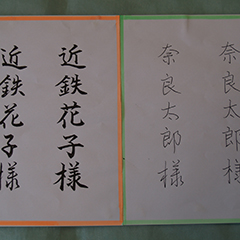 奈良太郎様
奈良太郎様
近鉄花子様
近鉄花子様